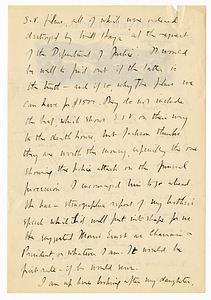 S-V. films, all of which were ordered
destroyed by Will Hays "at the request
of the Department of Justice". It would
be well to find out if the latter is
the truth - and if so, why. The films we
can have for $1500. They do not include
the last which shows S & V. on their way
to the death house but Jackson thinks
they are worth the money, especially the one
showing the police attack on the funeral
procession. I encouraged him to go ahead.
He has a stenographic report of my brother's
speech which he will put into shape for me
He suggested Morris Ernst as Chairman -
President, or whatever I am. It would be
first-rate - if he would serve.
I am up here looking after my daughter,